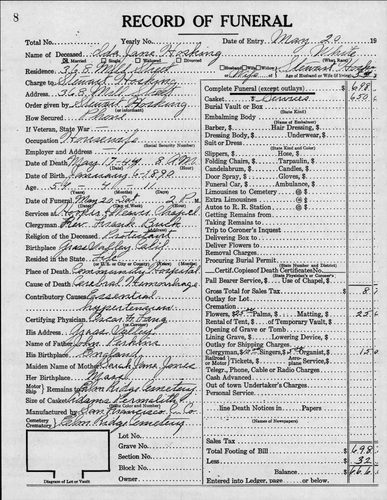 8
RECORD OF FUNERAL
Total No. Yearly No. Date of Entry May 20 19
Name of Deceased Ada Jane Hosking White
Married Single Widowed Divorced (What Race)
Residence 368 Mill Street Husband Wife Widow of Stewart Hosking
Charge to Stewart Hosking Age of Husband or Wife (if living)
Address 368 Mill Street
Order given by Stewart Hosking
(or informant)
How Secured Phone
If Veteran, State War
Occupation Housewife
(Social Security Number)
Employer and Address
Date of Death May 17-44 8 A.M.
Date of Birth January 6-1890
Age 54 4 11
Date of Funeral May 20 2 P.M.
Services at Hooper & Weaver Chapel
Clergyman Rev. Frank Buck
Religion of the Deceased Protestant
Birthplace Grass Valley Calif.
Resided in the State Life
(or U.S. or City or County)
Place of Death Community Hospital
Cause of Death Cerebral Hemorrhage
Contributory Causes Essential
hypertension
Certifying Physician
His Address Grass Valley
Name of Father John Perkins
His Birthplace England
Maiden Name of Mother Sarah Jane Jones
Her Birthplace
Motor Ship Remains to Elm Ridge Cemetery
Size of Casket Adams Permalith
(State Color and Number)
Manufactured by San Francisco C. Co.
Cemetery Crematory Elm Ridge Cemetery
Lot No.
Grave No.
Section No.
Block No.
Owner
Diagram of Lot or Vault
Complete Funeral (except outlays) $ 698
Casket Services $ 650
Burial Vault or Box $
(State Kind)
Embalming Body $
Barber, $ Hair Dressing, $
Dressing Body, $ Underwear, $
Suit or Dress $
(State Kind and Color)
Slippers, $ Hose, $ $
Folding Chairs, $ Tarpaulin, $ $
Candelabrum, $ Candles, $ $
Door Spray, $ Gloves, $ $
Funeral Car, $ Ambulance, $ $
Limousines to Cemetery @ $ $
Extra Limousines @ $ $
Autos to R. R. Station @ $ $
Getting Remains from $
Taking Remains to $
Trip to Coroner's Inquest $
Delivering Box to $
Deliver Flowers to $
Removal Charges $
Procuring Burial Permit $
(State Number and District)
Certif. Copies of Death Certificates No. $
(State Physician's or Coroner's)
Pall Bearer Service, $ Use of Chapel, $ $
Gross Total for Sales Tax $
Outlay for Lot $
Cremation $
Flowers, $25 Palms, $ Matting, $ $ 25
Rental of Tent, $ of Temporary Vault, $ $
Opening of Grave or Tomb $
Lining Grave, $ Lowering Device, $ $
Outlay for Shipping Charges $
Clergyman, $ Singers, $ Organist, $ $ 15
Railroad Tickets, $ Aero Service, $ $
Telegr., Phone, Cable or Radio Charges $
Cash Advanced $
Out of town Undertaker's Charges $
Personal Service $
line Death Notices in Papers $
(Names and Number)
Sales Tax $
Total Footing of Bill $ 698
Less $ 32
Balance $ 666
Entered into Ledger, page or below.